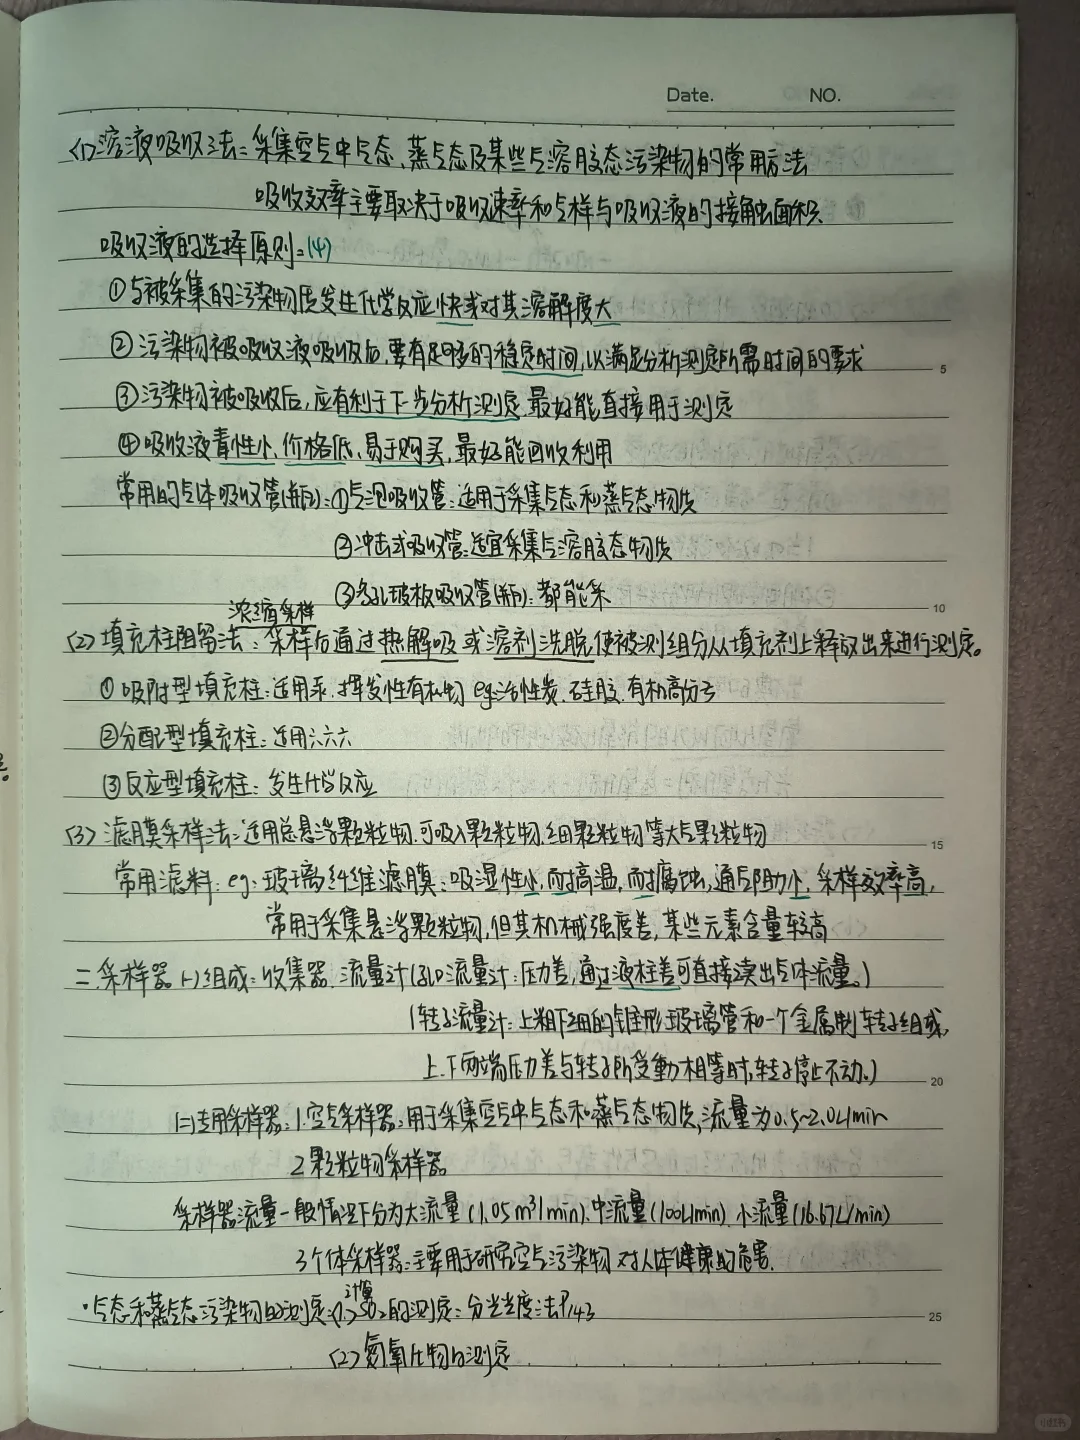 Date. NO.
(1)溶液吸收法:采集空气中气态、蒸气态及某些气溶胶态污染物的常用方法
吸收效率主要取决于吸收速率和气样与吸收液的接触面积.
吸收液的选择原则:(4)
①与被采集的污染物质发生化学反应快或对其溶解度大
②污染物被吸收液吸收后,要有足够的稳定时间,以满足分析测定所需时间的要求
5
③污染物被吸收后,应有利于下步分析测定,最好能直接用于测定
④吸收液毒性小、价格低、易于购买,最好能回收利用
常用的气体吸收管(瓶):①气泡吸收管:适用于采集气态和蒸气态物质
②冲击式吸收管:适宜采集气溶胶态物质
③多孔玻板吸收管(瓶):都能采
10
浓缩采样
(2)填充柱阻留法:采样后通过热解吸或溶剂洗脱,使被测组分从填充剂上释放出来进行测定。
①吸附型填充柱:适用汞.挥发性有机物 eg:活性炭.硅胶.有机高分子
②分配型填充柱:适用六六六
③反应型填充柱:发生化学反应
(3)滤膜采样法:适用总悬浮颗粒物.可吸入颗粒物.细颗粒物等大气颗粒物
15
常用滤料:eg:玻璃纤维滤膜:吸湿性小,耐高温,耐腐蚀,通气阻力小,采样效率高,
常用于采集悬浮颗粒物,但其机械强度差,某些元素含量较高
二.采样器(-)组成:收集器.流量计(孔口流量计:压力差,通过液柱差可直接读出气体流量。)
(转子流量计:上粗下细的锥形玻璃管和一个金属制转子组成,
上.下两端压力差与转子所受 相等时,转子停止不动。)
20
(二)专用采样器:1.空气采样器:用于采集空气中气态和蒸气态物质,流量为0.5~2.0L/min
2颗粒物采样器
采样器流量一般情况下分为大流量(1.05m³/min).中流量(100L/min).小流量(16.67L/min)
3个体采样器:主要用于研究空气污染物对人体健康的危害.
计算
·气态和蒸气态污染物的测定:(1)SO₂的测定:分光光度法P143
25
(2)氮氧化物的测定
小红书